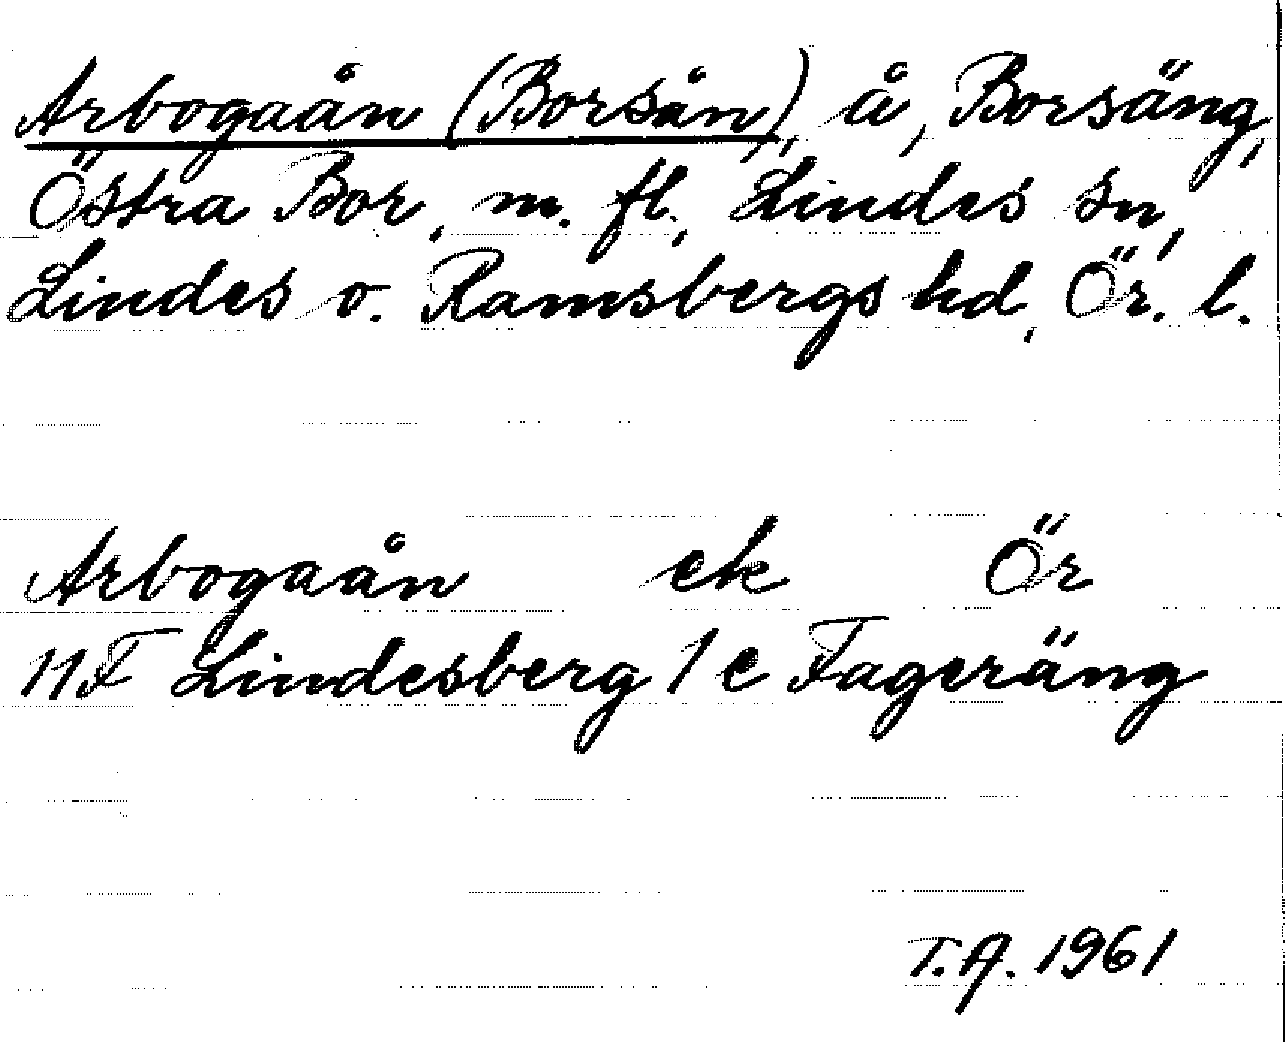 Arbogaån (Borsån), å, Borsäng,
Östra Bor, m. fl., Lindes sn,
Lindes o. Ramsbergs hd, Ör. l.
Arbogaån ek Ör
11F Lindesberg 1 e Fageräng
T.A. 1961